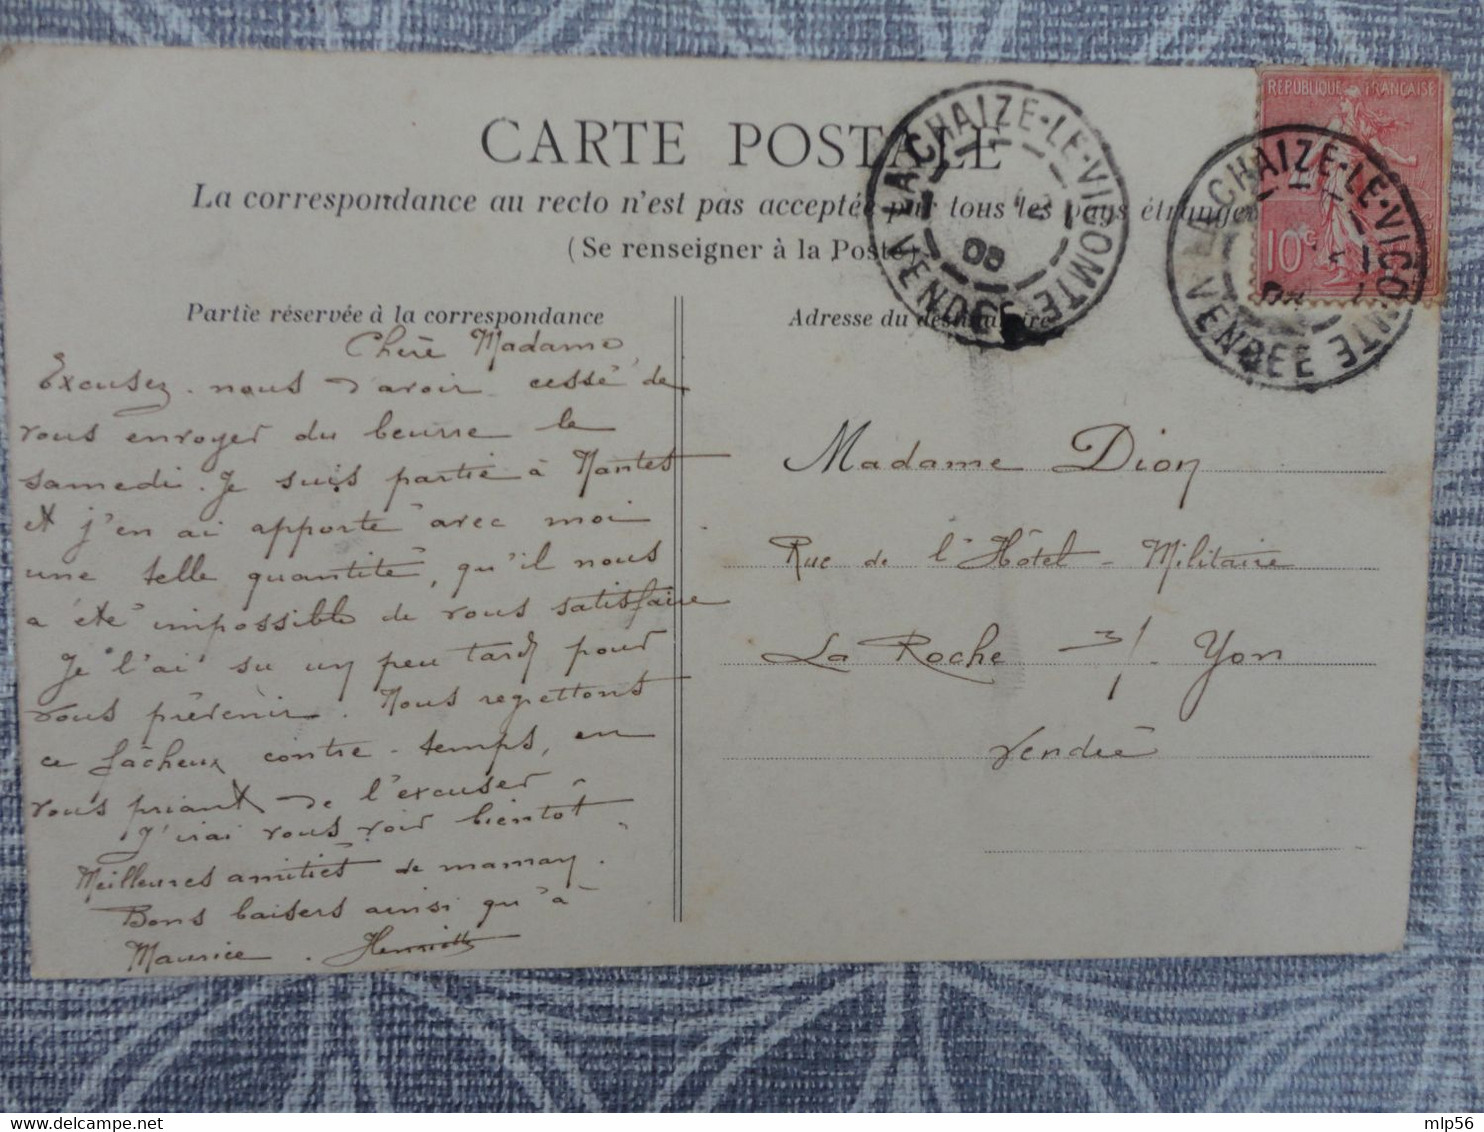 CARTE POSTALE
La corrrespondance au recto n'est pas acceptée par tous les pays étrangers
(Se renseigner à la Poste)
Partie réservée à la correspondance
Adresse du destinataire
RÉPUBLIQUE FRANÇAISE
10c
LA CHAIZE-LE-VICOMTE
VENDÉE
08
LA CHAIZE-LE-VICOMTE
VENDÉE
Chère Madame,
Excusez-nous d'avoir cessé de
vous envoyer du beurre le
samedi. Je suis partie à Nantes
et j'en ai apporté avec moi
une telle quantité, qu'il nous
a été impossible de vous satisfaire
Je l'ai su un peu tard pour
vous prévenir. Nous regrettons
ce fâcheux contre-temps, en
vous priant de l'excuser
J'irai vous voir bientôt.
Meilleures amitiés de maman.
Bons baisers ainsi qu'à
Maurice. Henriette
Madame Dion
Rue de l'Hôtel-Militaire
La Roche s/ Yon
Vendée
mlp56